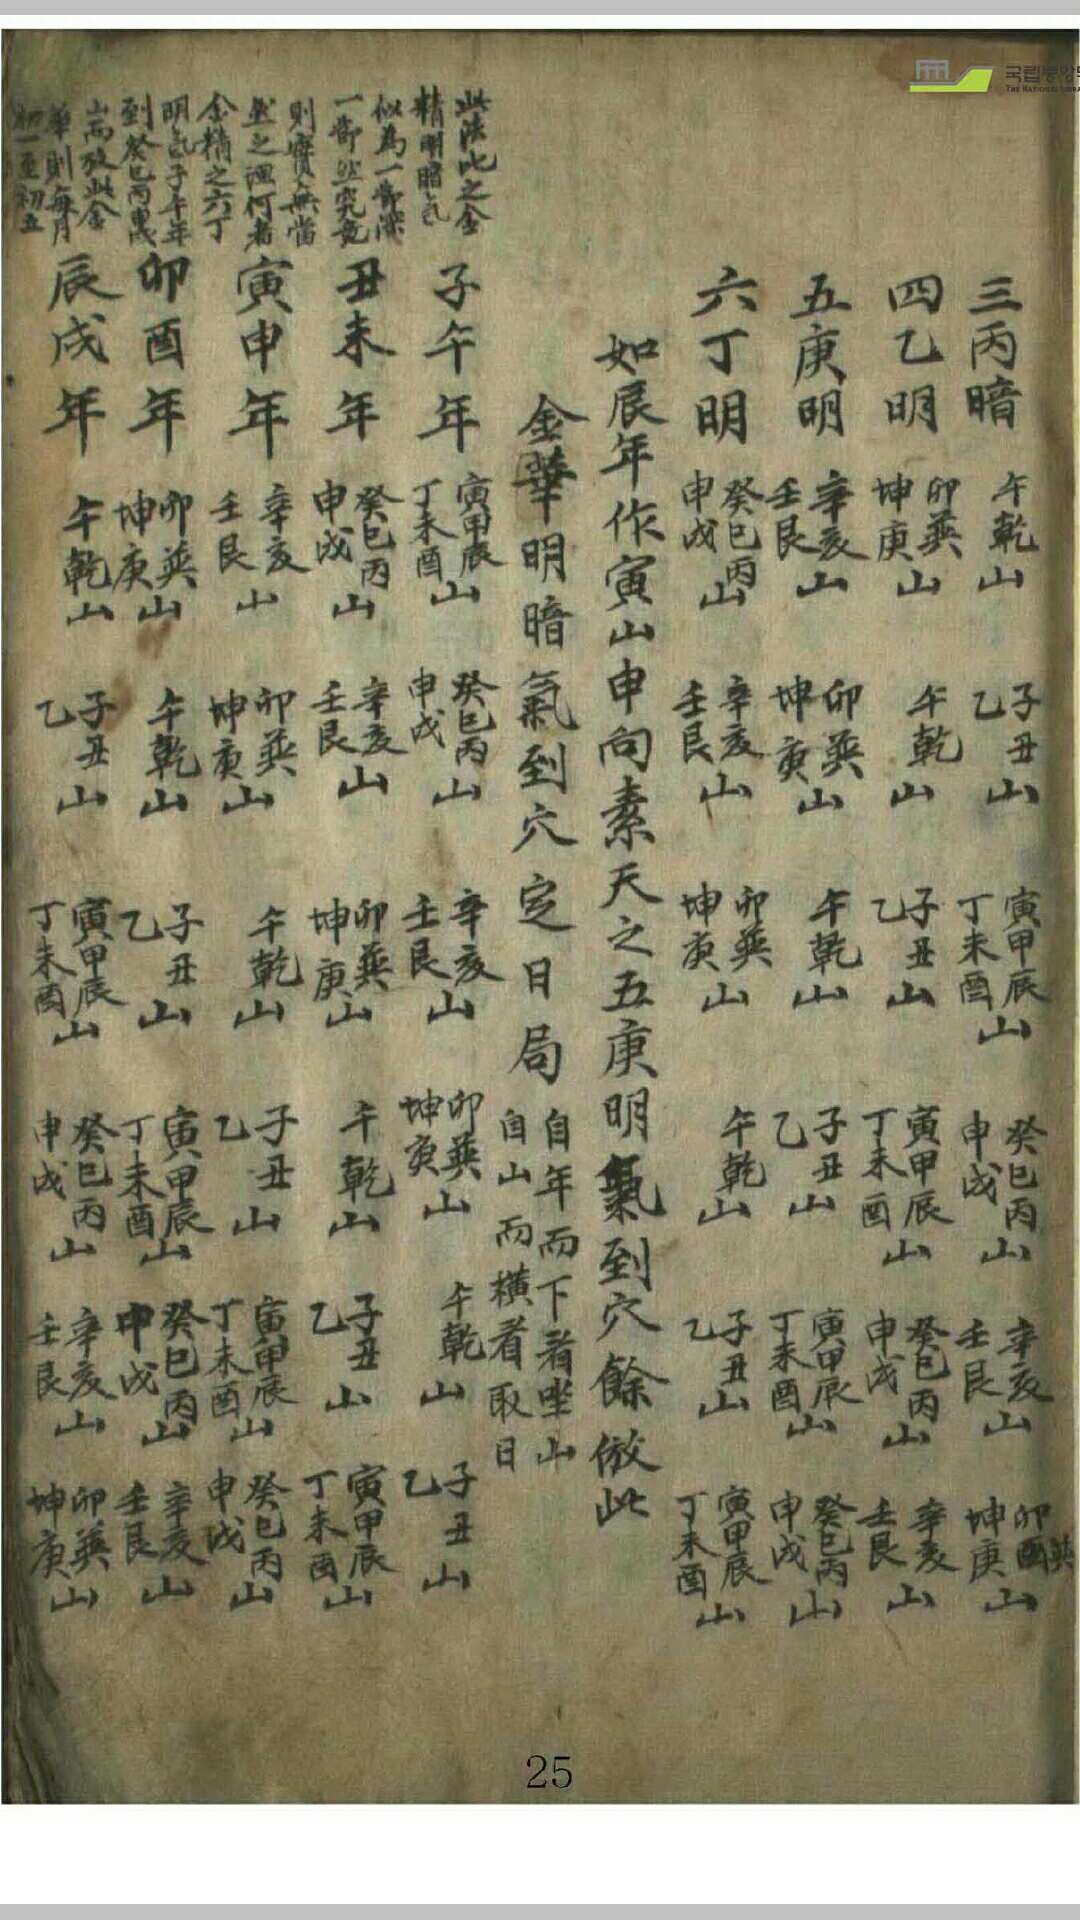 三丙暗 午乾山 子丑乙山 寅甲辰丁未酉山 癸巳丙申戌山 辛亥壬艮山 卯酉巽坤庚山
四乙明 卯巽坤庚山 午乾山 子丑乙山 寅甲辰丁未酉山 癸巳丙申戌山 辛亥壬艮山
五庚明 辛亥壬艮山 卯巽坤庚山 午乾山 子丑乙山 寅甲辰丁未酉山 癸巳丙申戌山
六丁明 癸巳丙申戌山 辛亥壬艮山 卯巽坤庚山 午乾山 子丑乙山 寅甲辰丁未酉山
如辰年作寅山申向素天之五庚明氣到穴餘倣此
金華明暗氣到穴定日局 自年而下者坐山
自山而橫者取日
此法比之金
精明暗气
似為一節深
一節然究竟
則實無當
然之理何者
金精之六丁
明气子午年
到癸巳丙
此金
華則每月
初一至初五
子午年 寅甲辰丁未酉山 癸巳丙申戌山 辛亥壬艮山 卯巽坤庚山 午乾山 子丑乙山
丑未年 癸巳丙申戌山 辛亥壬艮山 卯巽坤庚山 午乾山 子丑乙山 寅甲辰丁未酉山
寅申年 辛亥壬艮山 卯巽坤庚山 午乾山 子丑乙山 寅甲辰丁未酉山 癸巳丙申戌山
卯酉年 卯巽坤庚山 午乾山 子丑乙山 寅甲辰丁未酉山 癸巳丙申戌山 辛亥壬艮山
辰戌年 午乾山 子丑乙山 寅甲辰丁未酉山 癸巳丙申戌山 辛亥壬艮山 卯巽坤庚山
25